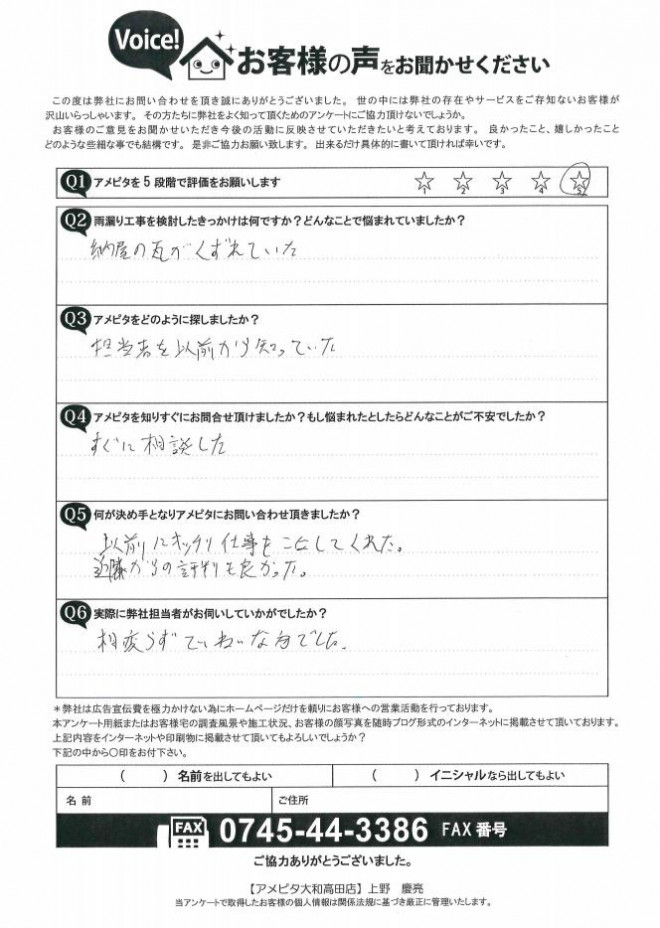 Voice!
お客様の声をお聞かせください
この度は弊社にお問い合わせを頂き誠にありがとうございました。 世の中には弊社の存在やサービスをご存知ないお客様が
沢山いらっしゃいます。 その方たちに弊社をよく知って頂くためのアンケートにご協力頂けないでしょうか。
お客様のご意見をお聞かせいただき今後の活動に反映させていただきたいと考えております。 良かったこと、嬉しかったこと
どのような些細な事でも結構です。 是非ご協力お願い致します。 出来るだけ具体的に書いて頂ければ幸いです。
Q1 アメピタを5段階で評価をお願いします
☆1 ☆2 ☆3 ☆4 ☆5
Q2 雨漏り工事を検討したきっかけは何ですか?どんなことで悩まれていましたか?
納屋の瓦がくずれていた
Q3 アメピタをどのように探しましたか?
担当者を以前から知っていた
Q4 アメピタを知りすぐにお問合せ頂けましたか?もし悩まれたとしたらどんなことがご不安でしたか?
すぐに相談した
Q5 何が決め手となりアメピタにお問い合わせ頂きましたか?
以前にキッチリ仕事をこなしてくれた。
近隣からの評判も良かった。
Q6 実際に弊社担当者がお伺いしていかがでしたか?
相変らずていねいな方でした。
*弊社は広告宣伝費を極力かけない為にホームページだけを頼りにお客様への営業活動を行っております。
本アンケート用紙またはお客様宅の調査風景や施工状況、お客様の顔写真を随時ブログ形式のインターネットに掲載させて頂いております。
上記内容をインターネットや印刷物に掲載させて頂いてもよろしいでしょうか?
下記の中から〇印をお付下さい。
( ) 名前を出してもよい
( ) イニシャルなら出してもよい
名前
ご住所
FAX 0745-44-3386 FAX番号
ご協力ありがとうございました。
【アメピタ大和高田店】上野 慶亮
当アンケートで取得したお客様の個人情報は関係法規に基づき最正に管理いたします。